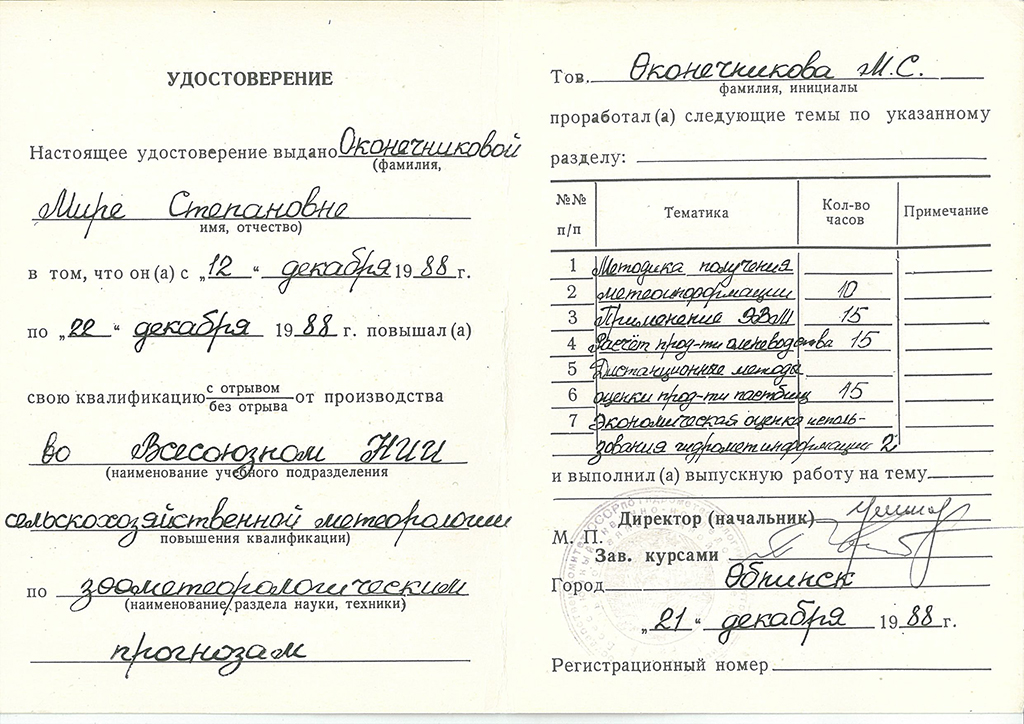 УДОСТОВЕРЕНИЕ
Настоящее удостоверение выдано Оконечниковой
(фамилия,
Мире Степановне
имя, отчество)
в том, что он(а) с „12“ декабря 1988 г.
по „22“ декабря 1988 г. повышал(а)
свою квалификацию с отрывом
без отрыва от производства
во Всесоюзном НИИ
(наименование учебного подразделения
сельскохозяйственной метеорологии
повышения квалификации)
по зоометеорологическим
(наименование раздела науки, техники)
прогнозам
Тов. Оконечникова М.С.
фамилия, инициалы
проработал(а) следующие темы по указанному
разделу:
№№ п/п Тематика Кол-во часов Примечание
1 Методика получения
2 метеоинформации 10
3 Применение ЭВМ 15
4 Расчет прод-ти оленеводства 15
5 Дистанционные методы
6 оценки прод-ти пастбищ 15
7 Экономическая оценка исполь-
зования гидрометинформации 2
и выполнил(а) выпускную работу на тему
Директор (начальник)
М. П.
Зав. курсами
Город Обнинск
„21“ декабря 1988 г.
Регистрационный номер